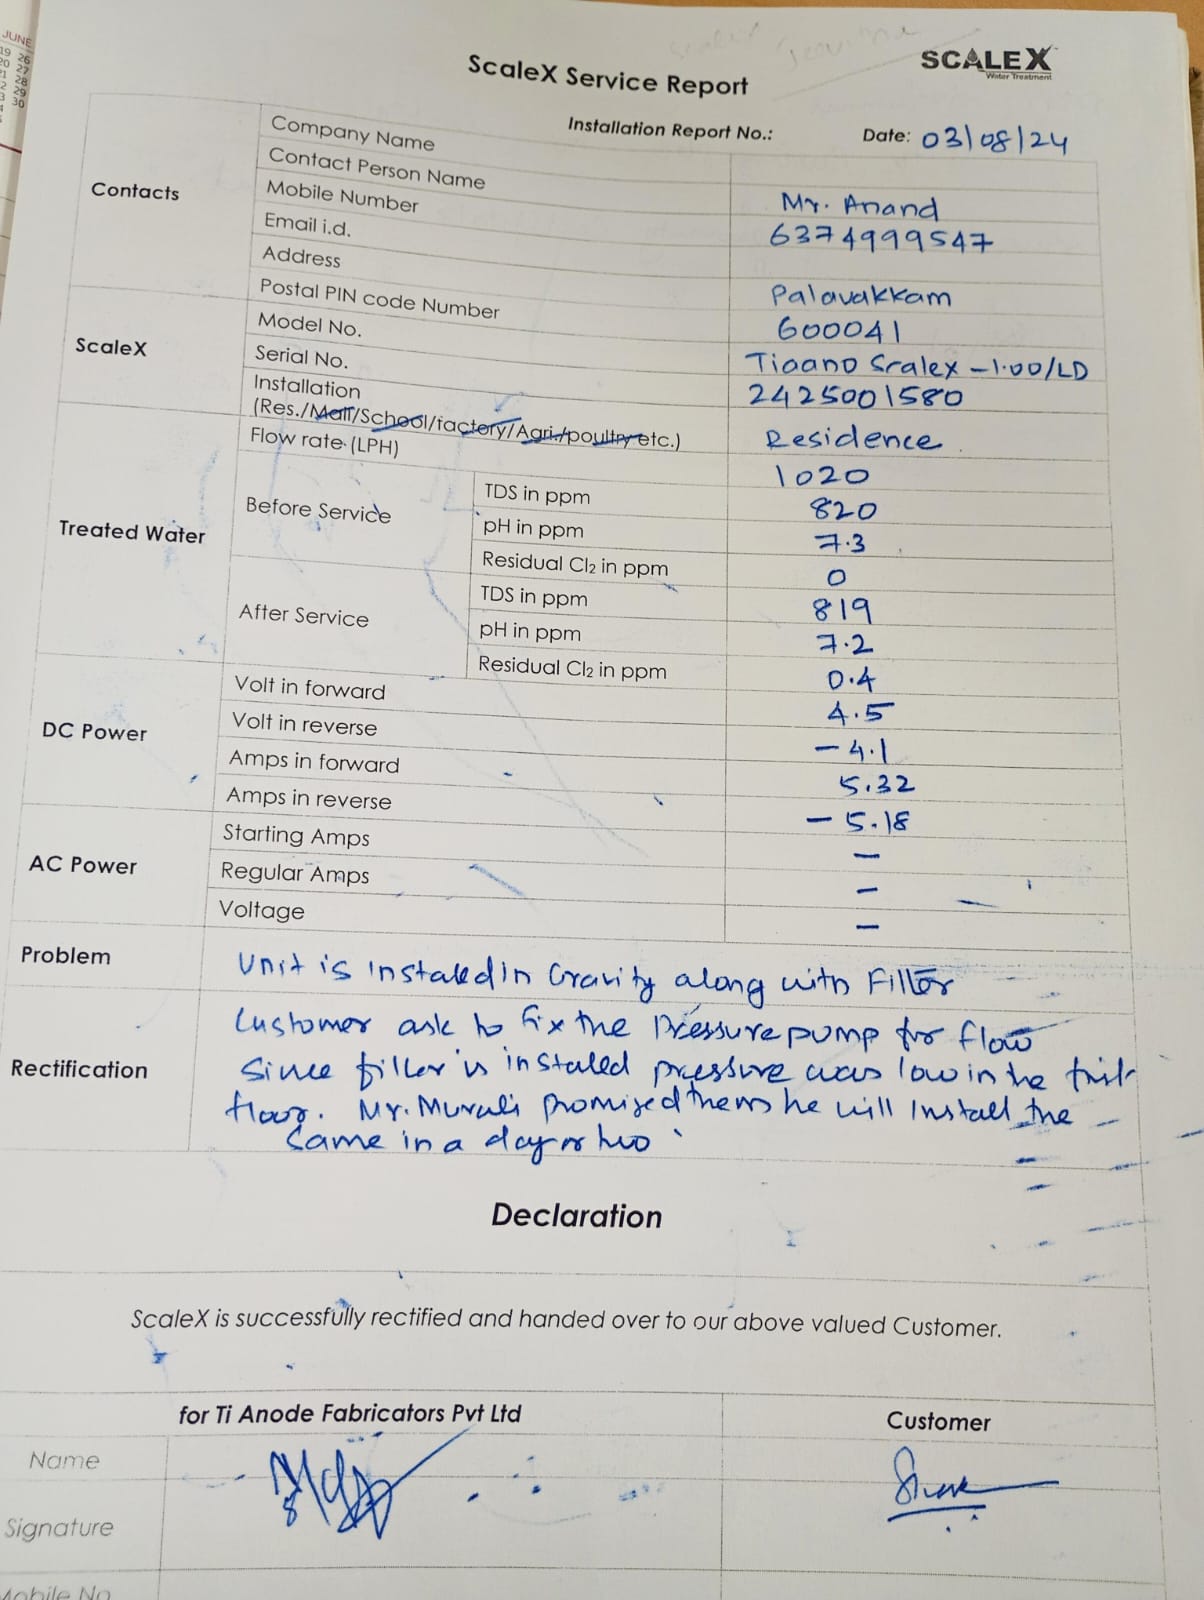 JUNE
19 26
20 27
21 28
22 29
23 30
ScaleX Service Report
SCALEX
Water Treatment
Installation Report No.:
Date: 03/08/24
Contacts
Company Name
Contact Person Name Mr. Anand
Mobile Number 6374999547
Email i.d.
Address Palavakkam
Postal PIN code Number 600041
ScaleX
Model No. Tiaano Scalex - 1.00/LD
Serial No. 2425001580
Installation
(Res./Mall/School/factory/Agri./poultry etc.) Residence
Treated Water
Flow rate (LPH) 1020
Before Service
TDS in ppm 820
pH in ppm 7.3
Residual Cl2 in ppm 0
After Service
TDS in ppm 819
pH in ppm 7.2
Residual Cl2 in ppm 0.4
DC Power
Volt in forward 4.5
Volt in reverse - 4.1
Amps in forward 5.32
Amps in reverse - 5.18
AC Power
Starting Amps -
Regular Amps -
Voltage -
Problem
Unit is instaled in Gravity along with Filter
Rectification
Customer ask to fix the Pressure pump for flow
Since filter is instaled pressure was low in the
floor. Mr. Murali promised them he will Install the
Same in a day or two
Declaration
ScaleX is successfully rectified and handed over to our above valued Customer.
for Ti Anode Fabricators Pvt Ltd
Customer
Name
Signature
Mobile No